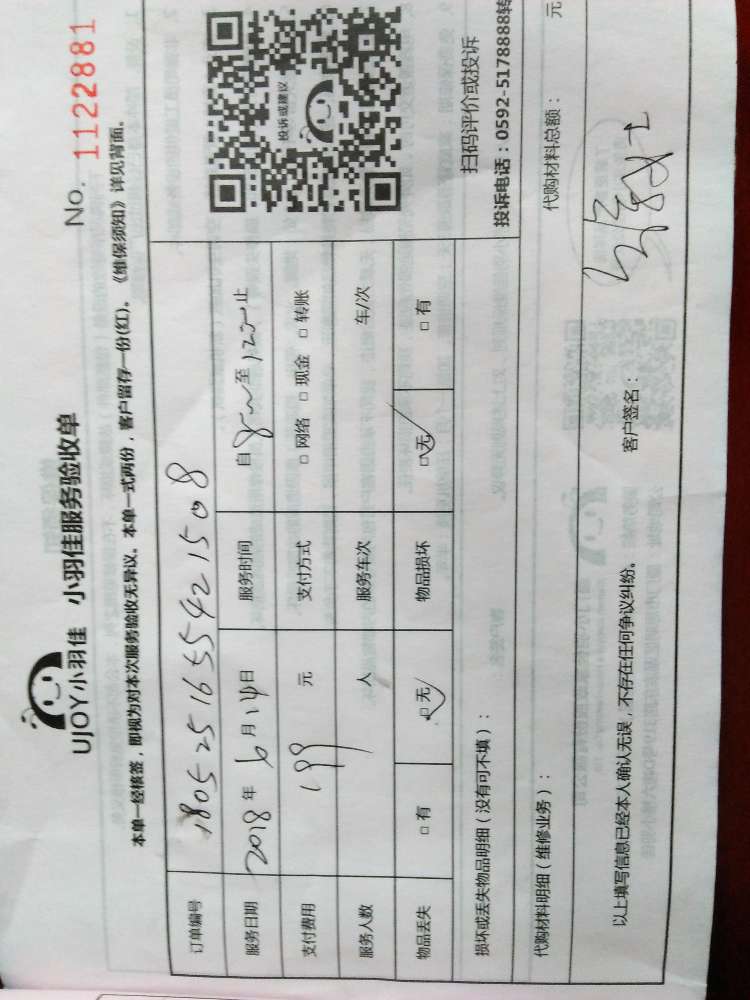 UJOY小羽佳 小羽佳服务验收单
No. 1122881
本单一经核签，即视为对本次服务验收无异议。本单一式两份，客户留存一份(红)。《维保须知》详见背面。
订单编号 180525165542 1508
服务日期 2018年6月14日 服务时间 自8~至12~止
支付费用 199 元 支付方式 □网络 □现金 □转账
服务人数 人 服务车次 车/次
物品丢失 □有 □无 物品损坏 □无 □有
投诉或建议
扫码评价或投诉
投诉电话：0592-5178888转
损坏或丢失物品明细（没有可不填）：
代购材料明细（维修业务）： 代购材料总额： 元
以上填写信息已经本人确认无误，不存在任何争议纠纷。 客户签名：